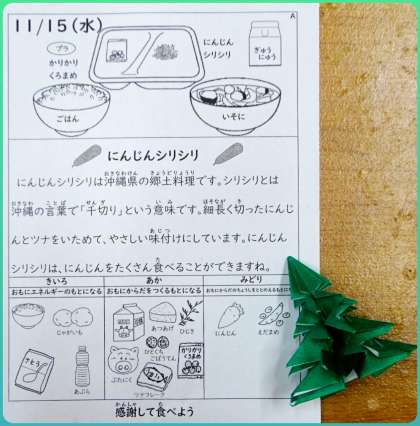 11/15(水)
A
プラ
かりかり
くろまめ
にんじん
シリシリ
ぎゅう
にゅう
ごはん
いそに
にんじんシリシリ
にんじんシリシリは沖縄県の郷土料理です。シリシリとは
沖縄の言葉で「千切り」という意味です。細長く切ったにんじ
んとツナをいためて、やさしい味付けにしています。にんじん
シリシリは、にんじんをたくさん食べることができますね。
きいろ あか みどり
おもにエネルギーのもとになる おもにからだをつくるもとになる
じゃがいも
さとう
あぶら
あつあげ
ひじき
ひとくち
ごぼうてん
ぶたにく
ツナフレーク
かりかり
くろまめ
にんじん
えだまめ
感謝して食べよう